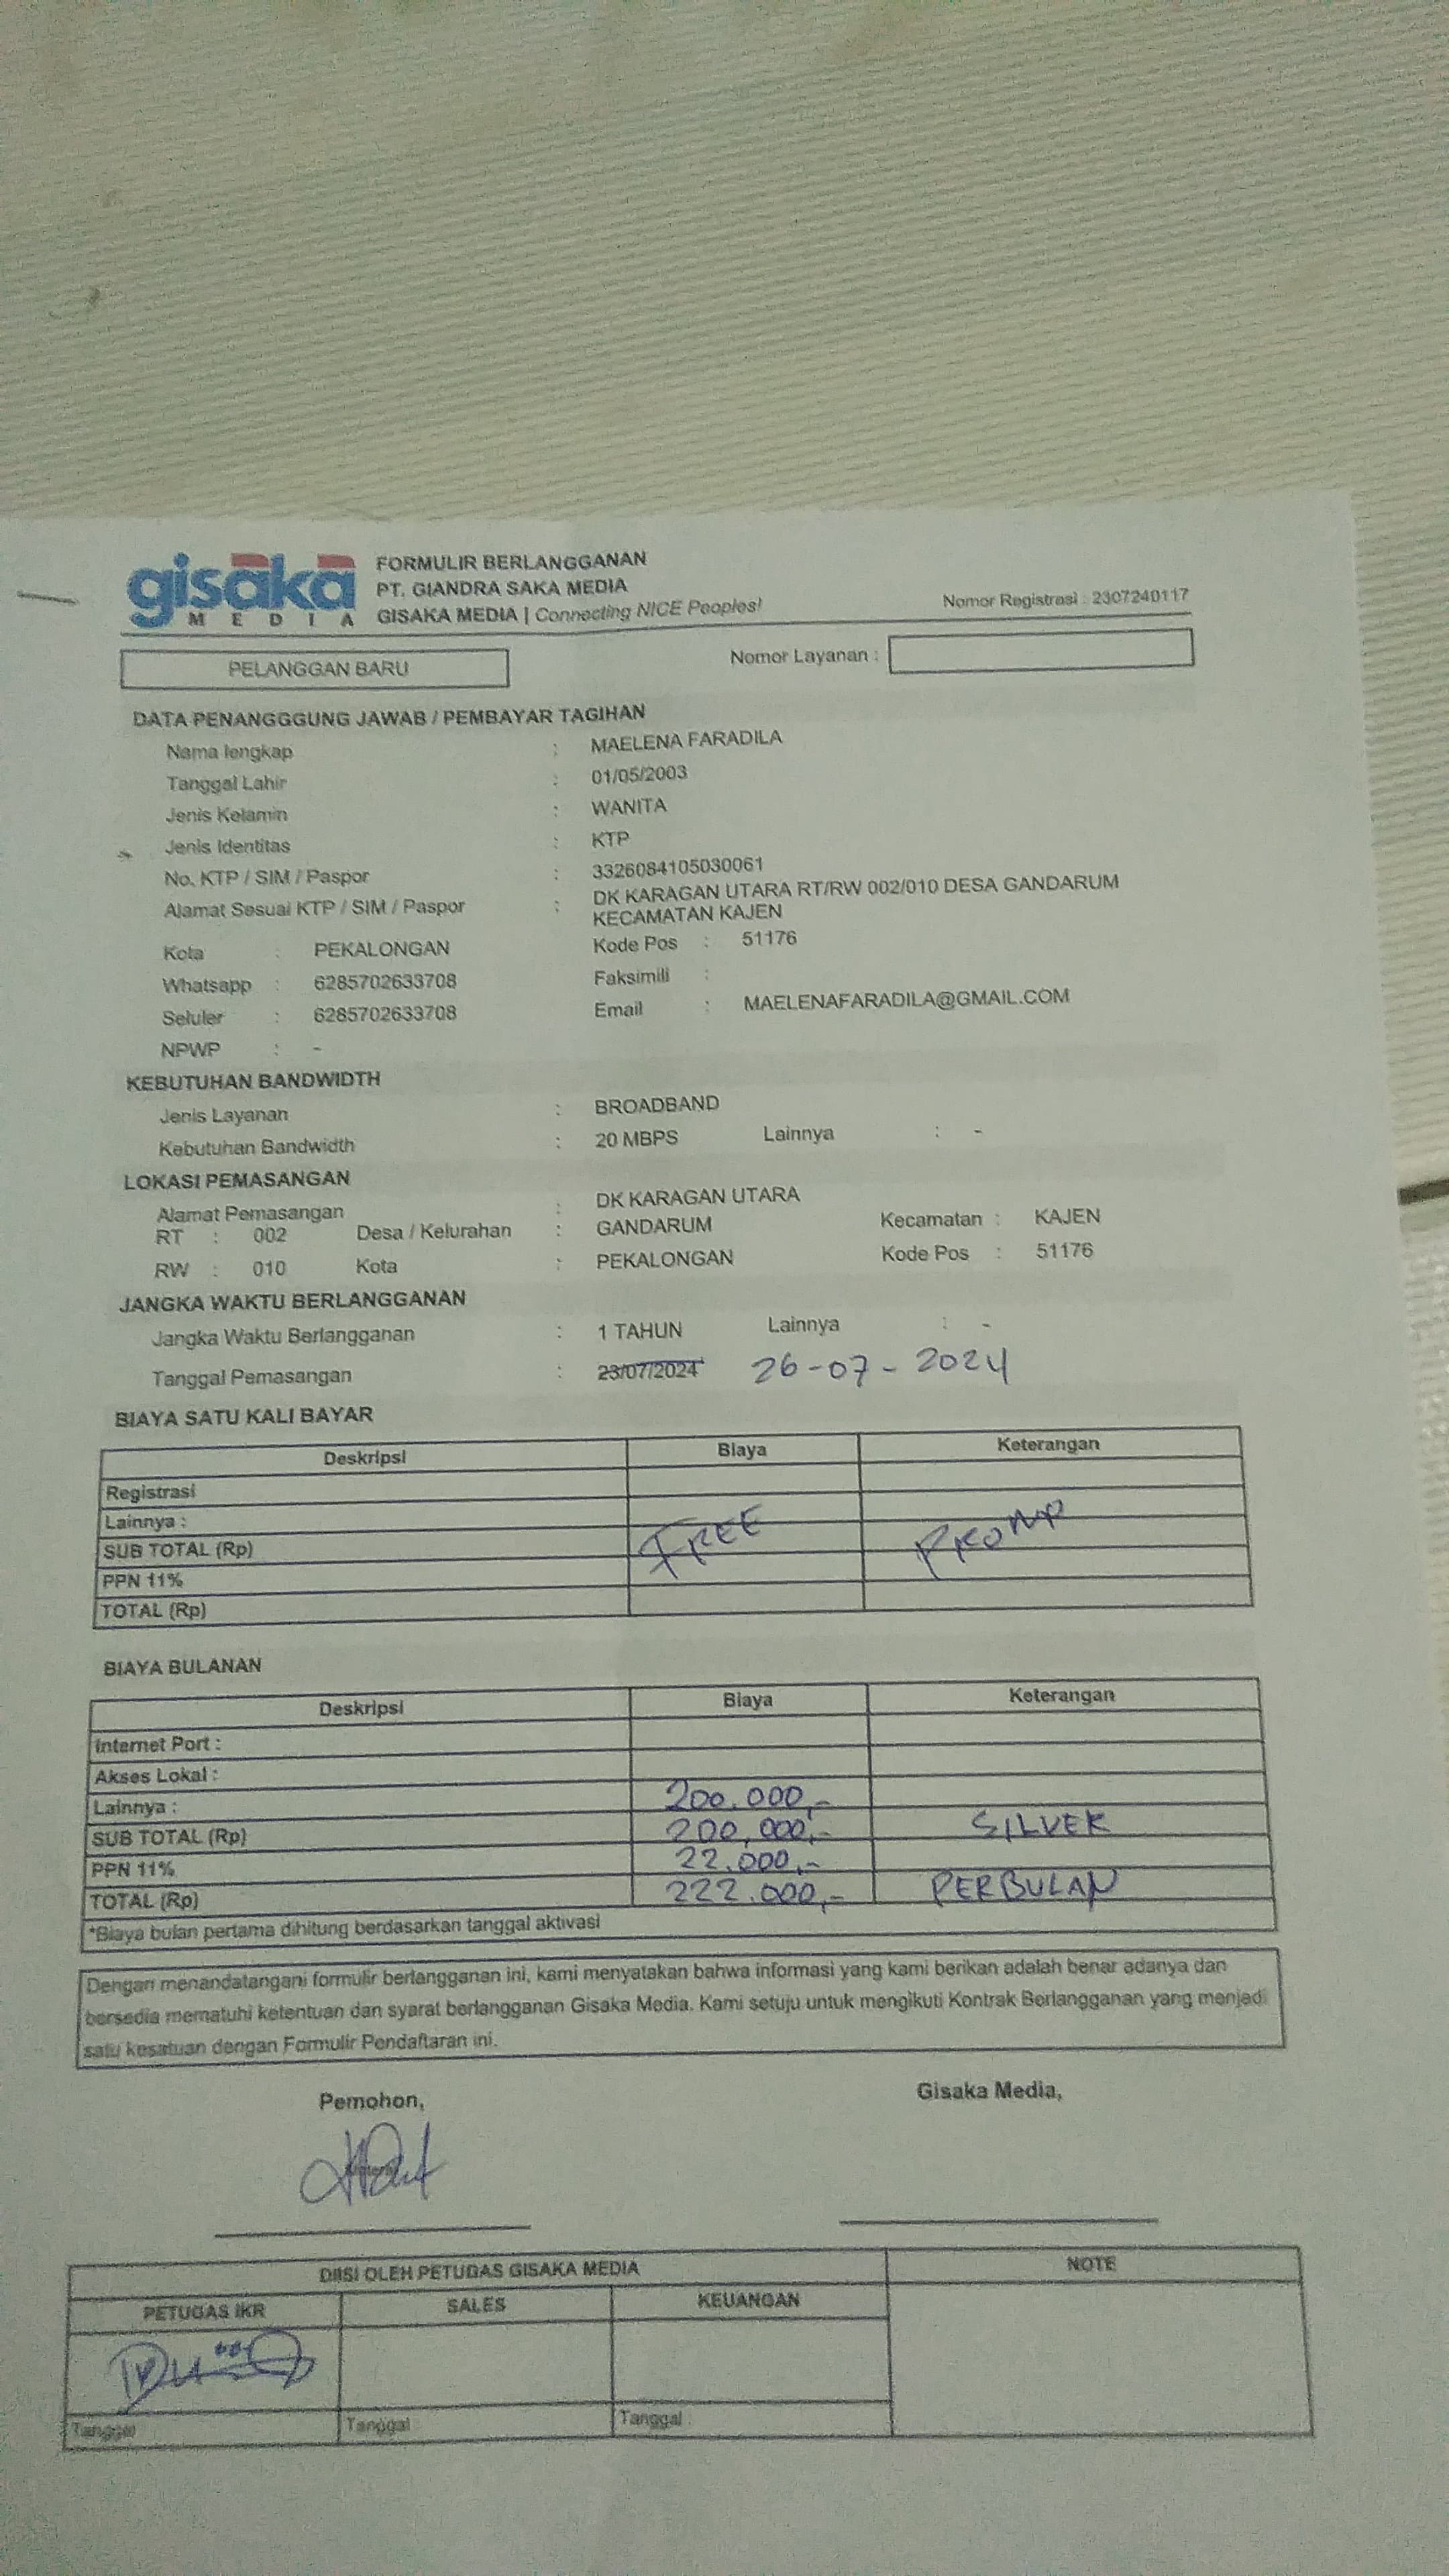 gisaka
MEDIA
FORMULIR BERLANGGANAN
PT. GIANDRA SAKA MEDIA
GISAKA MEDIA | Connecting NICE Peoples!
Nomor Registrasi : 2307240117
PELANGGAN BARU
Nomor Layanan :
DATA PENANGGGUNG JAWAB / PEMBAYAR TAGIHAN
Nama lengkap : MAELENA FARADILA
Tanggal Lahir : 01/05/2003
Jenis Kelamin : WANITA
Jenis Identitas : KTP
No. KTP / SIM / Paspor : 3326084105030061
Alamat Sesuai KTP / SIM / Paspor : DK KARAGAN UTARA RT/RW 002/010 DESA GANDARUM
KECAMATAN KAJEN
Kota : PEKALONGAN Kode Pos : 51176
Whatsapp : 6285702633708 Faksimili :
Seluler : 6285702633708 Email : MAELENAFARADILA@GMAIL.COM
NPWP : -
KEBUTUHAN BANDWIDTH
Jenis Layanan : BROADBAND
Kebutuhan Bandwidth : 20 MBPS Lainnya : -
LOKASI PEMASANGAN
Alamat Pemasangan : DK KARAGAN UTARA
RT : 002 Desa / Kelurahan : GANDARUM Kecamatan : KAJEN
RW : 010 Kota : PEKALONGAN Kode Pos : 51176
JANGKA WAKTU BERLANGGANAN
Jangka Waktu Berlangganan : 1 TAHUN Lainnya : -
Tanggal Pemasangan : 23/07/2024 26-07-2024
BIAYA SATU KALI BAYAR
Deskripsi Biaya Keterangan
Registrasi
Lainnya :
SUB TOTAL (Rp) FREE PROMO
PPN 11%
TOTAL (Rp)
BIAYA BULANAN
Deskripsi Biaya Keterangan
Internet Port :
Akses Lokal :
Lainnya : 200.000,-
SUB TOTAL (Rp) 200,000,- SILVER
PPN 11% 22.000,-
TOTAL (Rp) 222.000,- PERBULAN
*Biaya bulan pertama dihitung berdasarkan tanggal aktivasi
Dengan menandatangani formulir berlangganan ini, kami menyatakan bahwa informasi yang kami berikan adalah benar adanya dan
bersedia mematuhi ketentuan dan syarat berlangganan Gisaka Media. Kami setuju untuk mengikuti Kontrak Berlangganan yang menjadi
satu kesatuan dengan Formulir Pendaftaran ini.
Pemohon, Gisaka Media,
DIISI OLEH PETUGAS GISAKA MEDIA NOTE
PETUGAS IKR SALES KEUANGAN
Tanggal Tanggal Tanggal